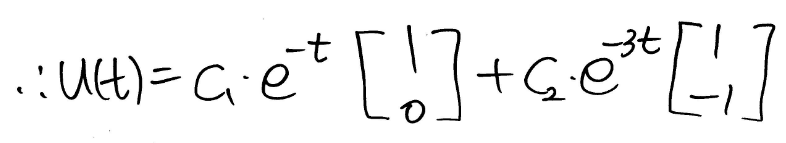 ∴ U(t) = C₁·e^{-t} [1; 0] + C₂·e^{-3t} [1; -1]